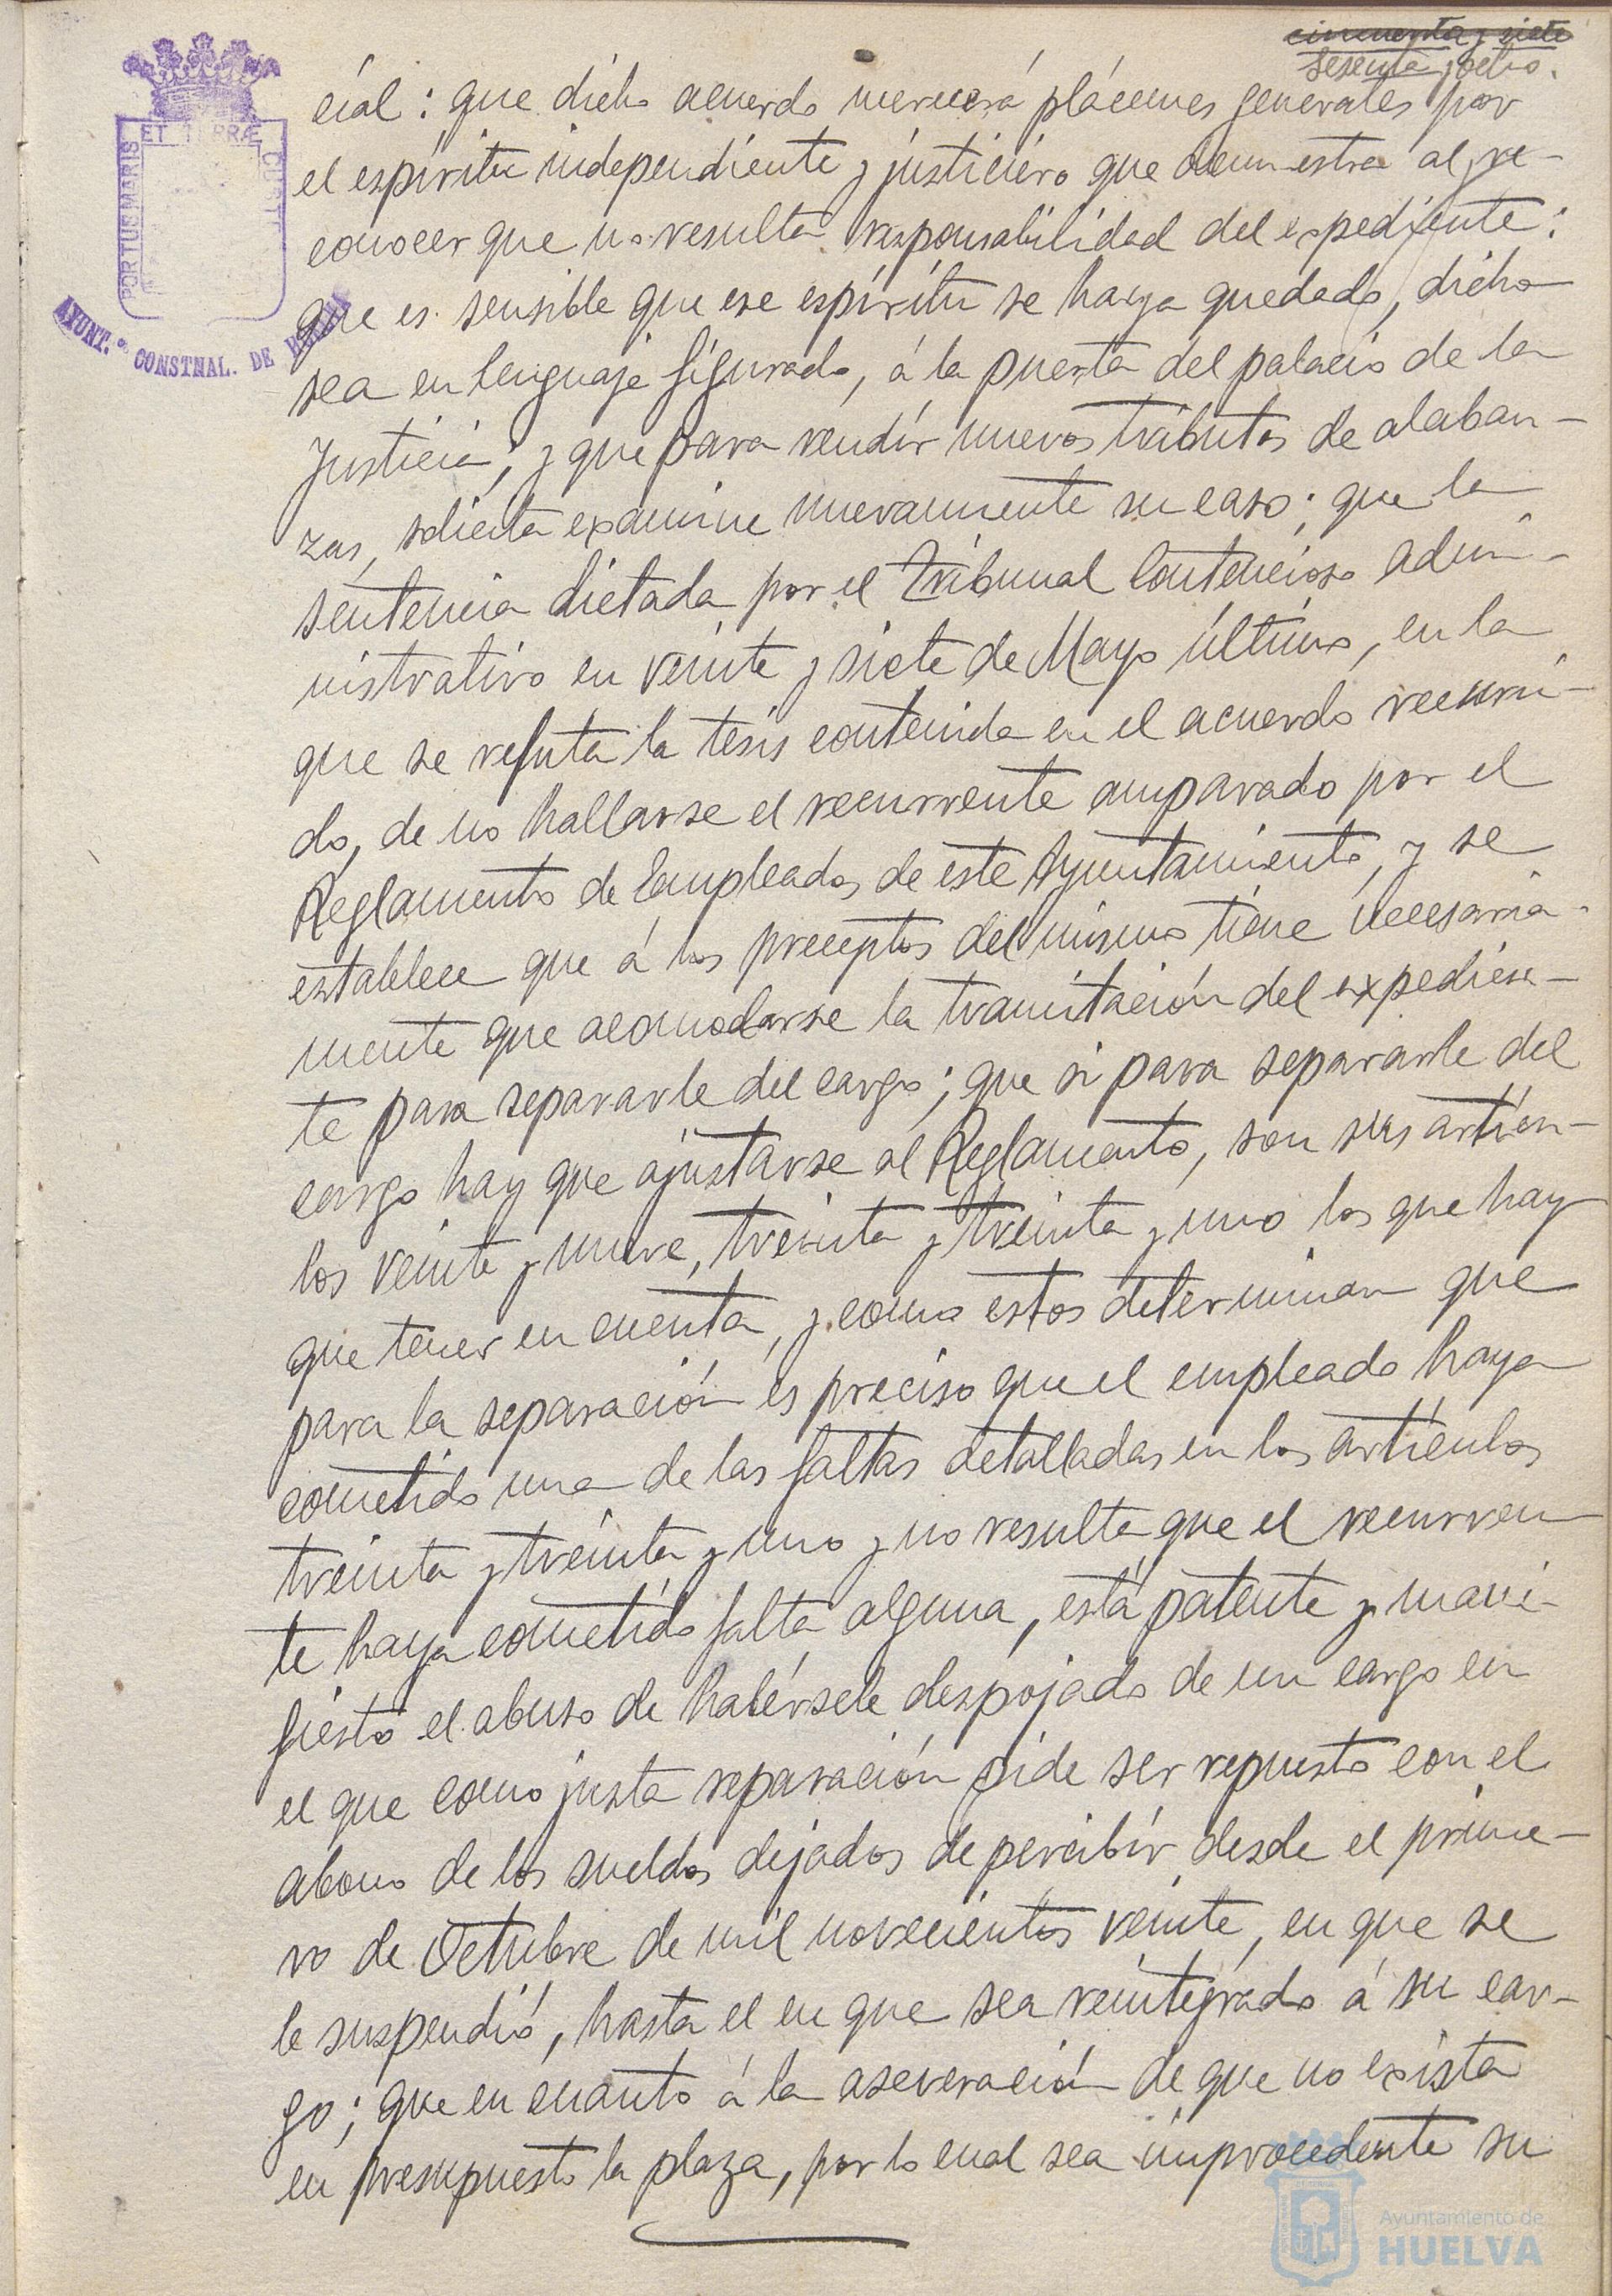 cincuenta y siete
sesenta y ocho.
PORTUS MARIS ET TERRÆ CUST
AYUNT.º CONSTNAL. DE HUELVA
cial: que dicho acuerdo merecerá plácemes generales por
el espíritu independiente y justiciero que demuestra al re-
conocer que no resulta responsabilidad del expediente:
que es sensible que ese espíritu se haya quedado, dicho
sea en lenguaje figurado, á la puerta del palacio de la
Justicia; y que para rendir nuevos tributos de alaban-
zas, solicita examine nuevamente su caso; que la
sentencia dictada por el Tribunal Contencioso admi-
nistrativo en veinte y siete de Mayo último, en la
que se refuta la tesis contenida en el acuerdo recurri-
do, de no hallarse el recurrente amparado por el
Reglamento de Empleados de este Ayuntamiento, y se
establece que á los preceptos del mismo tiene necesaria-
mente que acomodarse la tramitación del expedien-
te para separarle del cargo; que si para separarle del
cargo hay que ajustarse al Reglamento, son sus artícu-
los veinte y nueve, treinta y treinta y uno los que hay
que tener en cuenta, y como estos determinan que
para la separación es preciso que el empleado haya
cometido una de las faltas detalladas en los artículos
treinta y treinta y uno y no resulta que el recurren
te haya cometido falta alguna, está patente y mani-
fiesto el abuso de habérsele despojado de un cargo en
el que como justa reparación pide ser repuesto con el
abono de los sueldos dejados de percibir desde el prime-
ro de Octubre de mil novecientos veinte, en que se
le suspendió, hasta el en que sea reintegrado á su car-
go; que en cuanto á la aseveración de que no exista
en presupuesto la plaza, por lo cual sea improcedente su
Ayuntamiento de
HUELVA